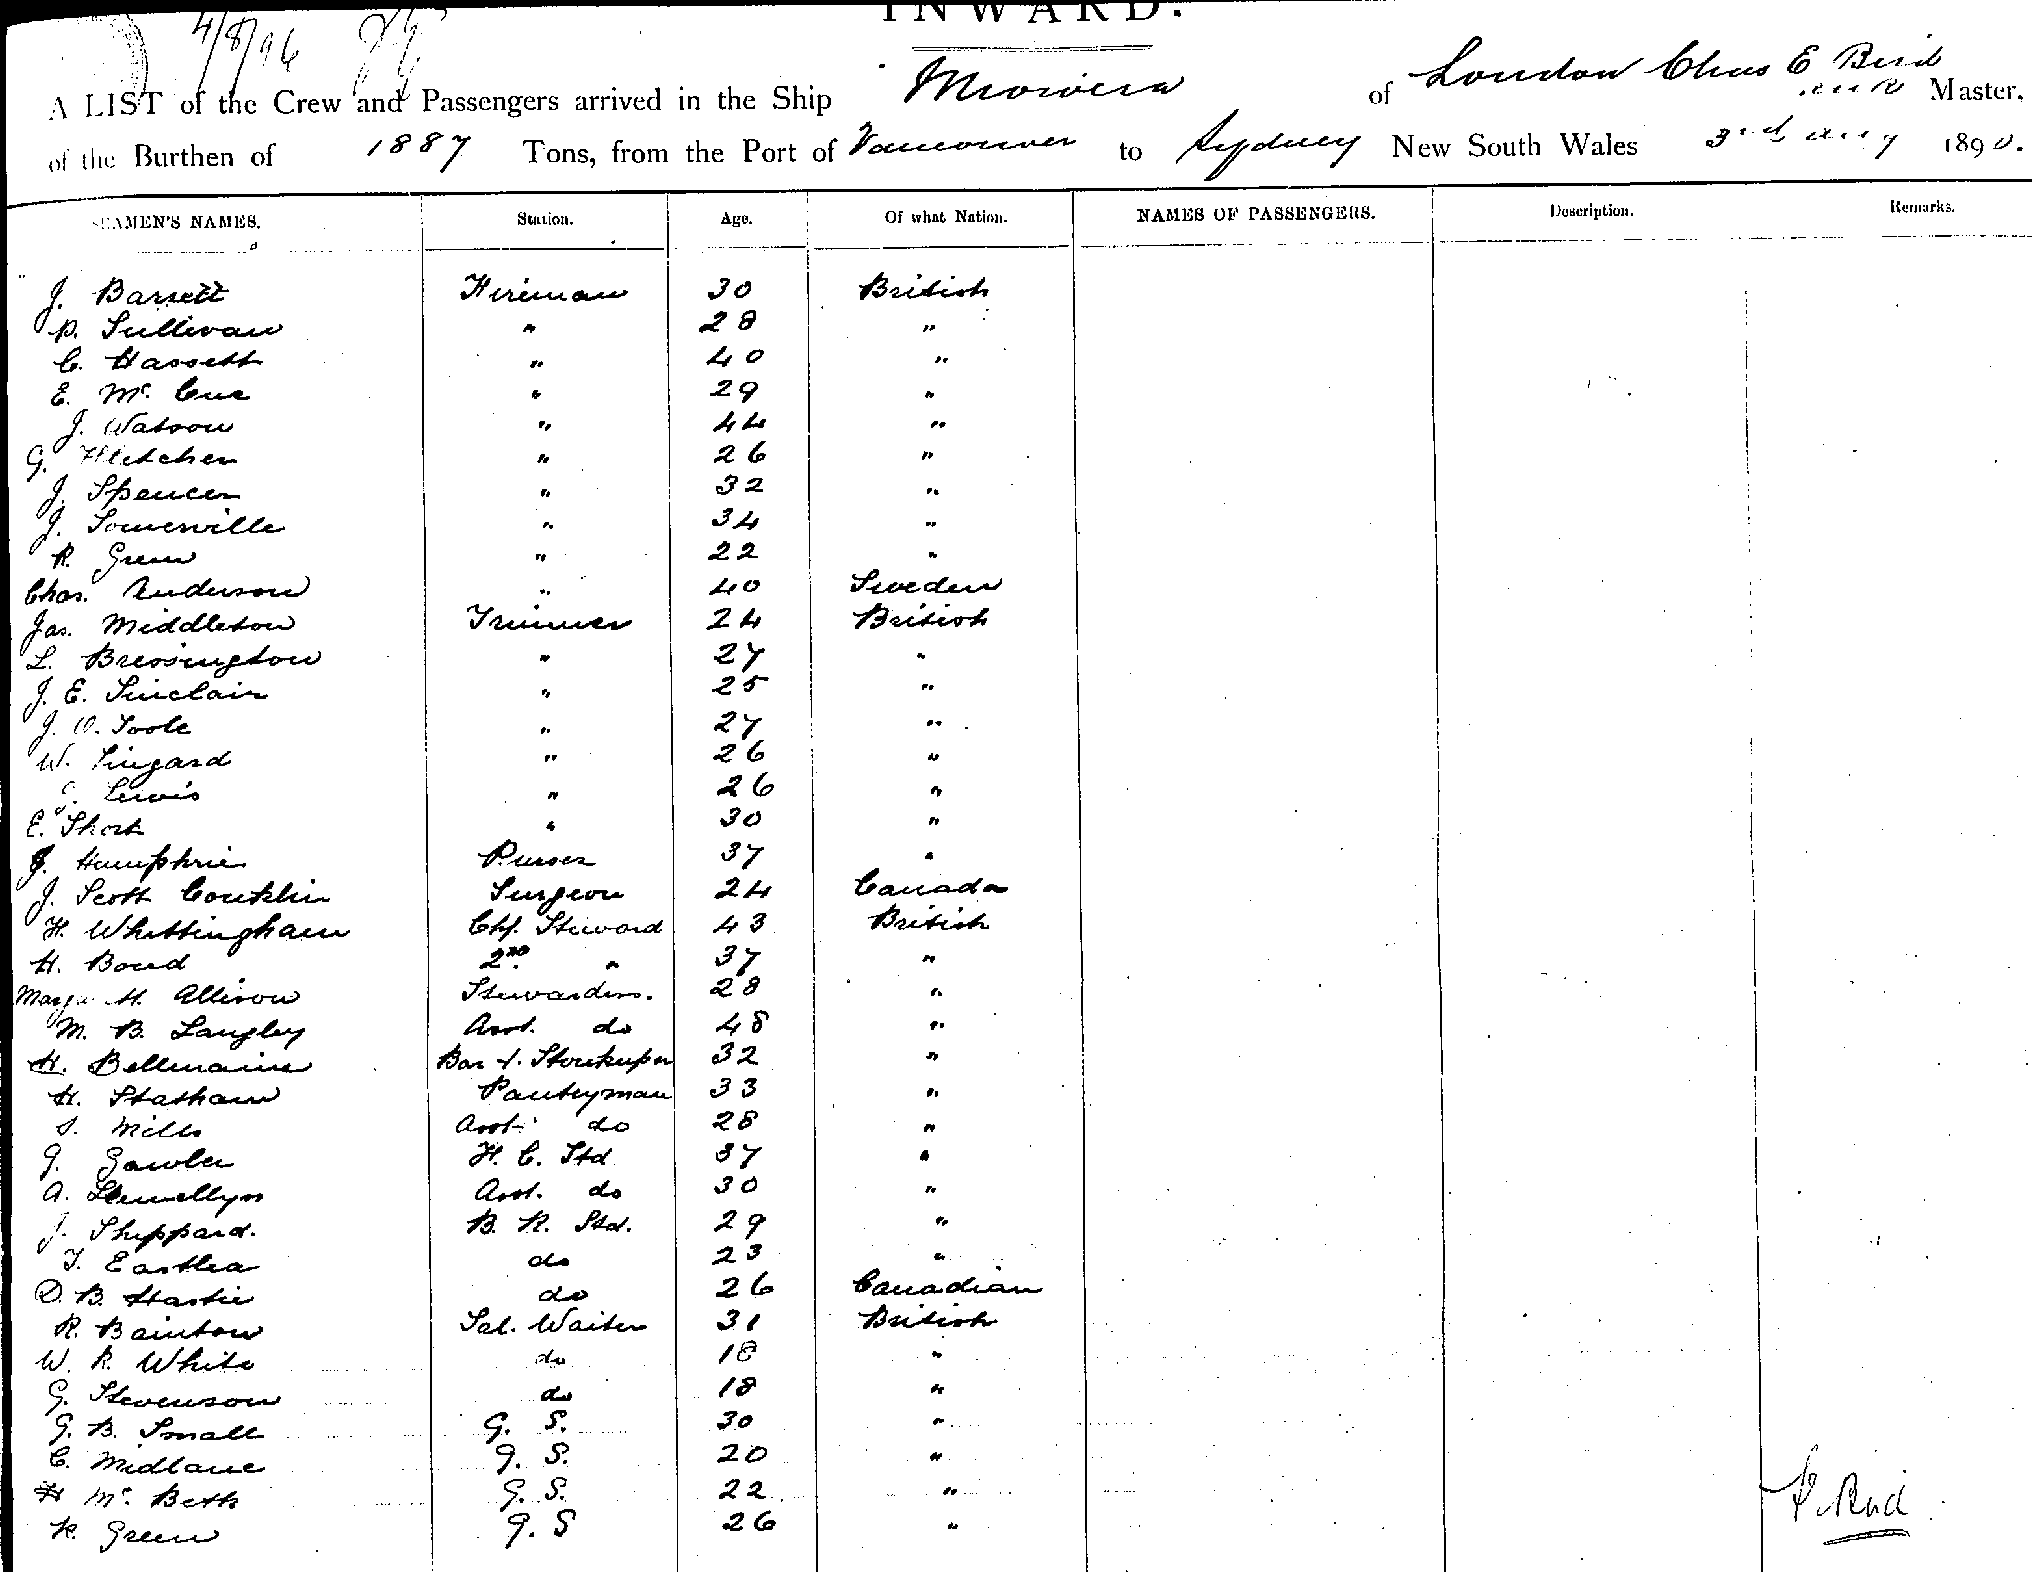 INWARD.
4/8/96
A LIST of the Crew and Passengers arrived in the Ship Miowera of London Chas E Bird Master,
of the Burthen of 1887 Tons, from the Port of Vancouver to Sydney New South Wales 3rd Aug 1890.
SEAMEN'S NAMES. Station. Age. Of what Nation. NAMES OF PASSENGERS. Description. Remarks.
J. Barsett Fireman 30 British
P. Sullivan " 28 "
C. Hassett " 40 "
E. Mc Cue " 29 "
J. Watson " 44 "
G. Fletcher " 26 "
J. Spencer " 32 "
J. Somerville " 34 "
R. Green " 22 "
Chas. Anderson " 40 Sweden
Jas. Middleton Trimmer 24 British
L. Bressington " 27 "
J. E. Sinclair " 25 "
J. O. Toole " 27 "
W. Lingard " 26 "
J. Lewis " 26 "
E. Short " 30 "
J. Humphrie Purser 37 "
J. Scott Conklin Surgeon 24 Canada
H. Whittingham Chf. Steward 43 British
H. Bond 2nd " 37 "
H. Allison Stewardess. 28 "
M. B. Langley Asst. do 48 "
H. Bellmaine Bar & Storekeeper 32 "
H. Statham Pantryman 33 "
S. Mills Asst. do 28 "
G. Gawler H. C. Std 37 "
A. Llewellyn Asst. do 30 "
J. Sheppard. B. R. Std. 29 "
T. Eastlea do 23 "
D. B. Hastie do 26 Canadian
R. Bainton Sal. Waiter 31 British
W. R. White do 18 "
G. Stevenson do 18 "
G. B. Small G. S. 30 "
C. Midlane G. S. 20 "
H Mc. Beth G. S. 22 "
R. Green G. S 26 "